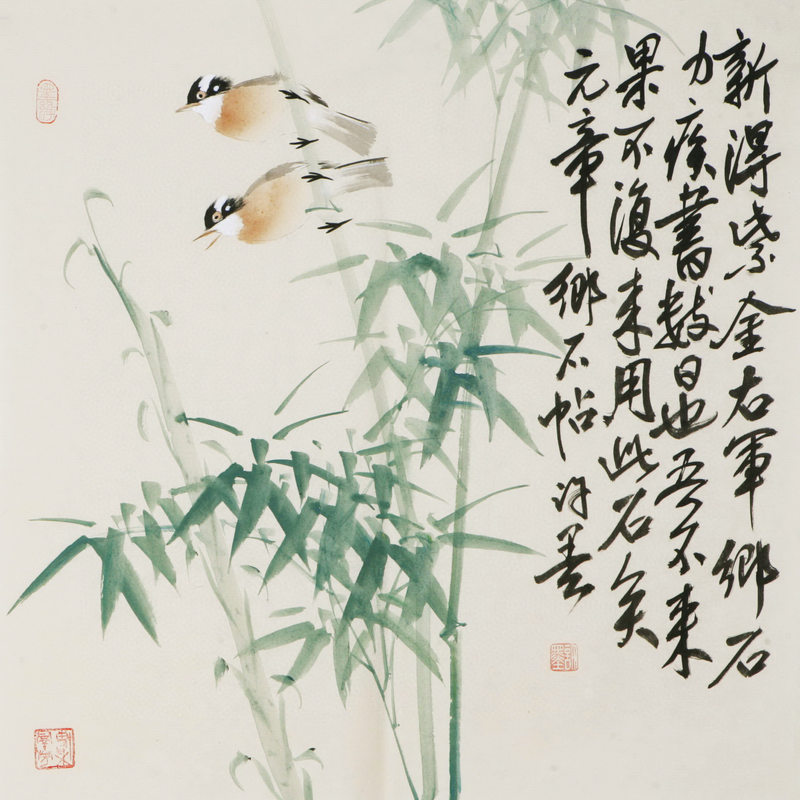 新得紫金右軍鄉石
力疾書數日也吾不來
果不復來用此石矣
元章鄉石帖 許墨